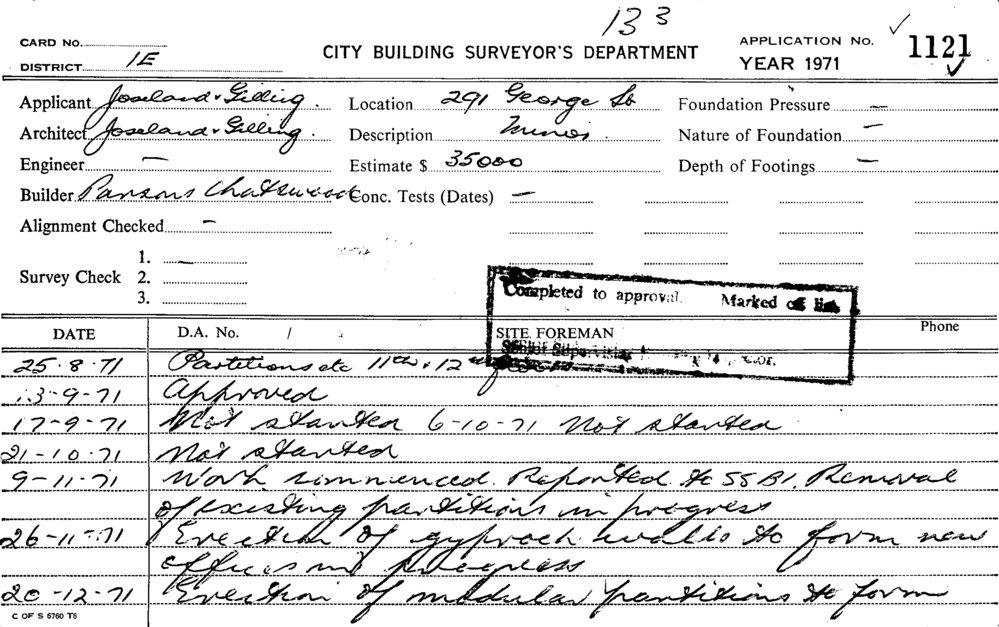 13 3
CARD No.
DISTRICT 1E
CITY BUILDING SURVEYOR'S DEPARTMENT
APPLICATION No. 1121
YEAR 1971
Applicant Joseland & Gilling. Location 291 George St Foundation Pressure —
Architect Joseland & Gilling. Description Minor Nature of Foundation —
Engineer — Estimate $ 35000 Depth of Footings —
Builder Parsons Chatswood Conc. Tests (Dates) —
Alignment Checked —
Survey Check
1. —
2.
3.
Completed to approval. Marked off list.
DATE D.A. No. / SITE FOREMAN Phone
Senior Supervising
25.8.71 Partitions etc 11th & 12th
13-9-71 Approved
17-9-71 Not started 6-10-71 Not started
21-10-71 Not started
9-11-71 Work commenced. Reported to SSBI. Removal
of existing partitions in progress
26-11-71 Erection of gyprock walls to form new
offices in progress
20-12-71 Erection of modular partitions to form
C OF S 5760 T6